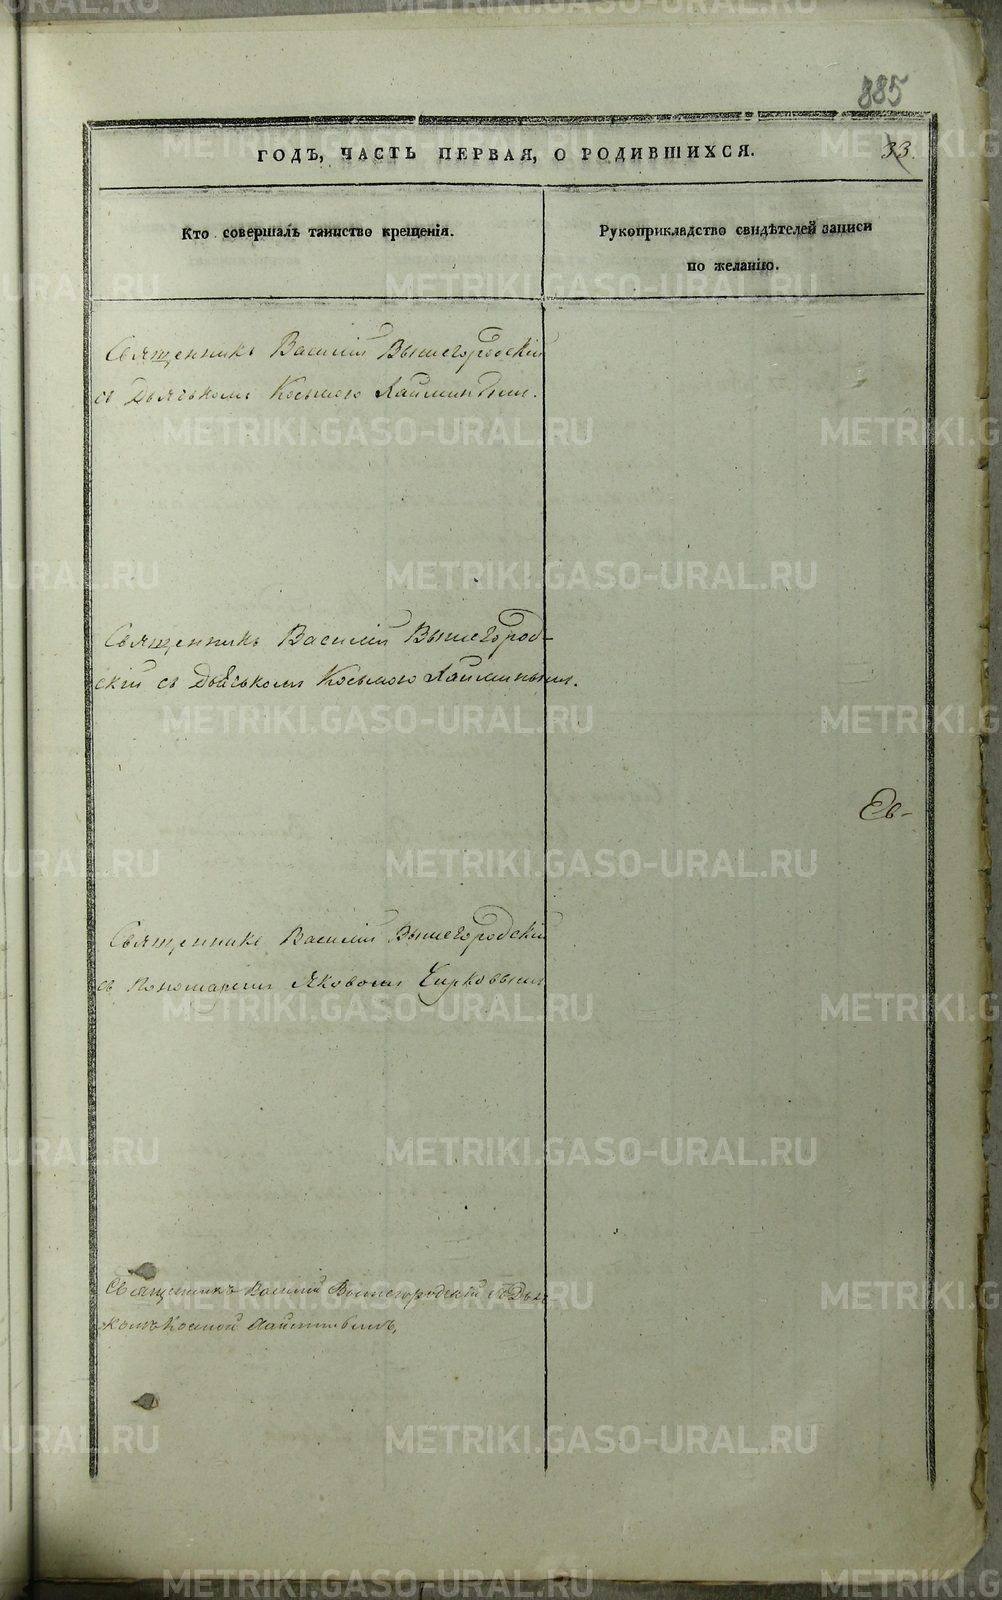 885
ГОДЪ, ЧАСТЬ ПЕРВАЯ, О РОДИВШИХСЯ.
33.
Кто совершалъ таинство крещенія.
Рукоприкладство свидѣтелей записи
по желанію.
Священникъ Василій Вышегородскій
съ Дьячькомъ Косьмою
Священникъ Василій Вышегород-
скій съ Дьячькомъ Косьмою
Ев-
Священникъ Василій Вышегородскій
съ Пономаремъ Яковомъ Чирковымъ
Священникъ Василій Вышегородскій
Космой
METRIKI.GASO-URAL.RU